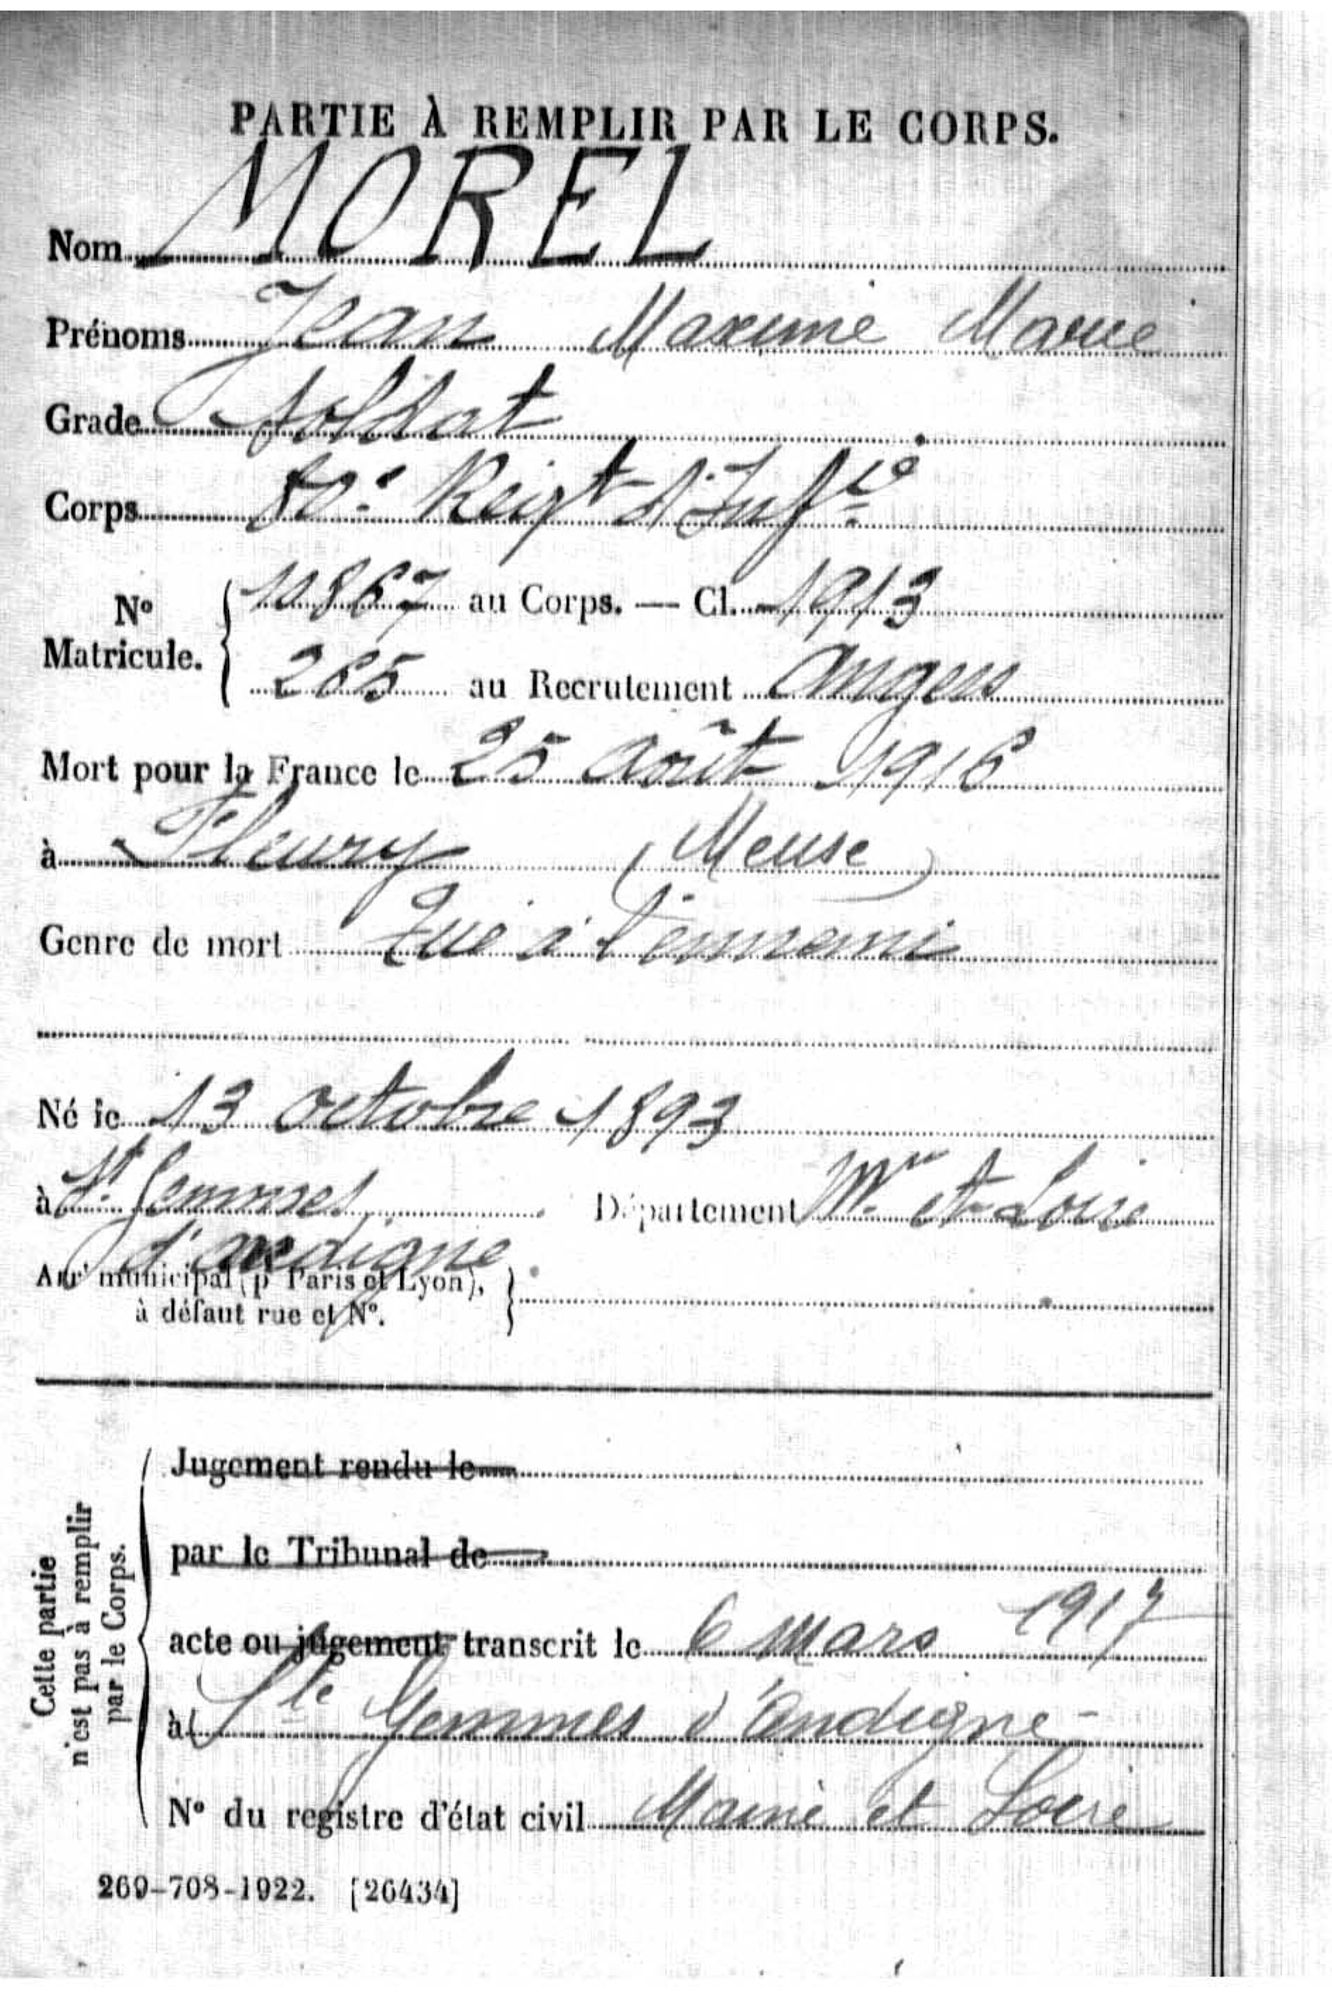 PARTIE À REMPLIR PAR LE CORPS.
Nom MOREL
Prénoms Jean Maxime Marie
Grade soldat
Corps 80e Reigt d'Infie
No Matricule. { 10867 au Corps. — Cl. 1913
265 au Recrutement Angers
Mort pour la France le 25 Août 1916
à Fleury (Meuse)
Genre de mort Tué à l'ennemi
Né le 13 octobre 1893
à St Gemmes Département Mne et Loire
d'andigne
Arrt municipal (p Paris et Lyon), }
à défaut rue et No.
Cette partie n'est pas à remplir par le Corps.
Jugement rendu le
par le Tribunal de
acte ou jugement transcrit le 6 mars 1917
à Ste Gemmes d'Andigne
No du registre d'état civil Maine et Loire
269-708-1922. [26434]